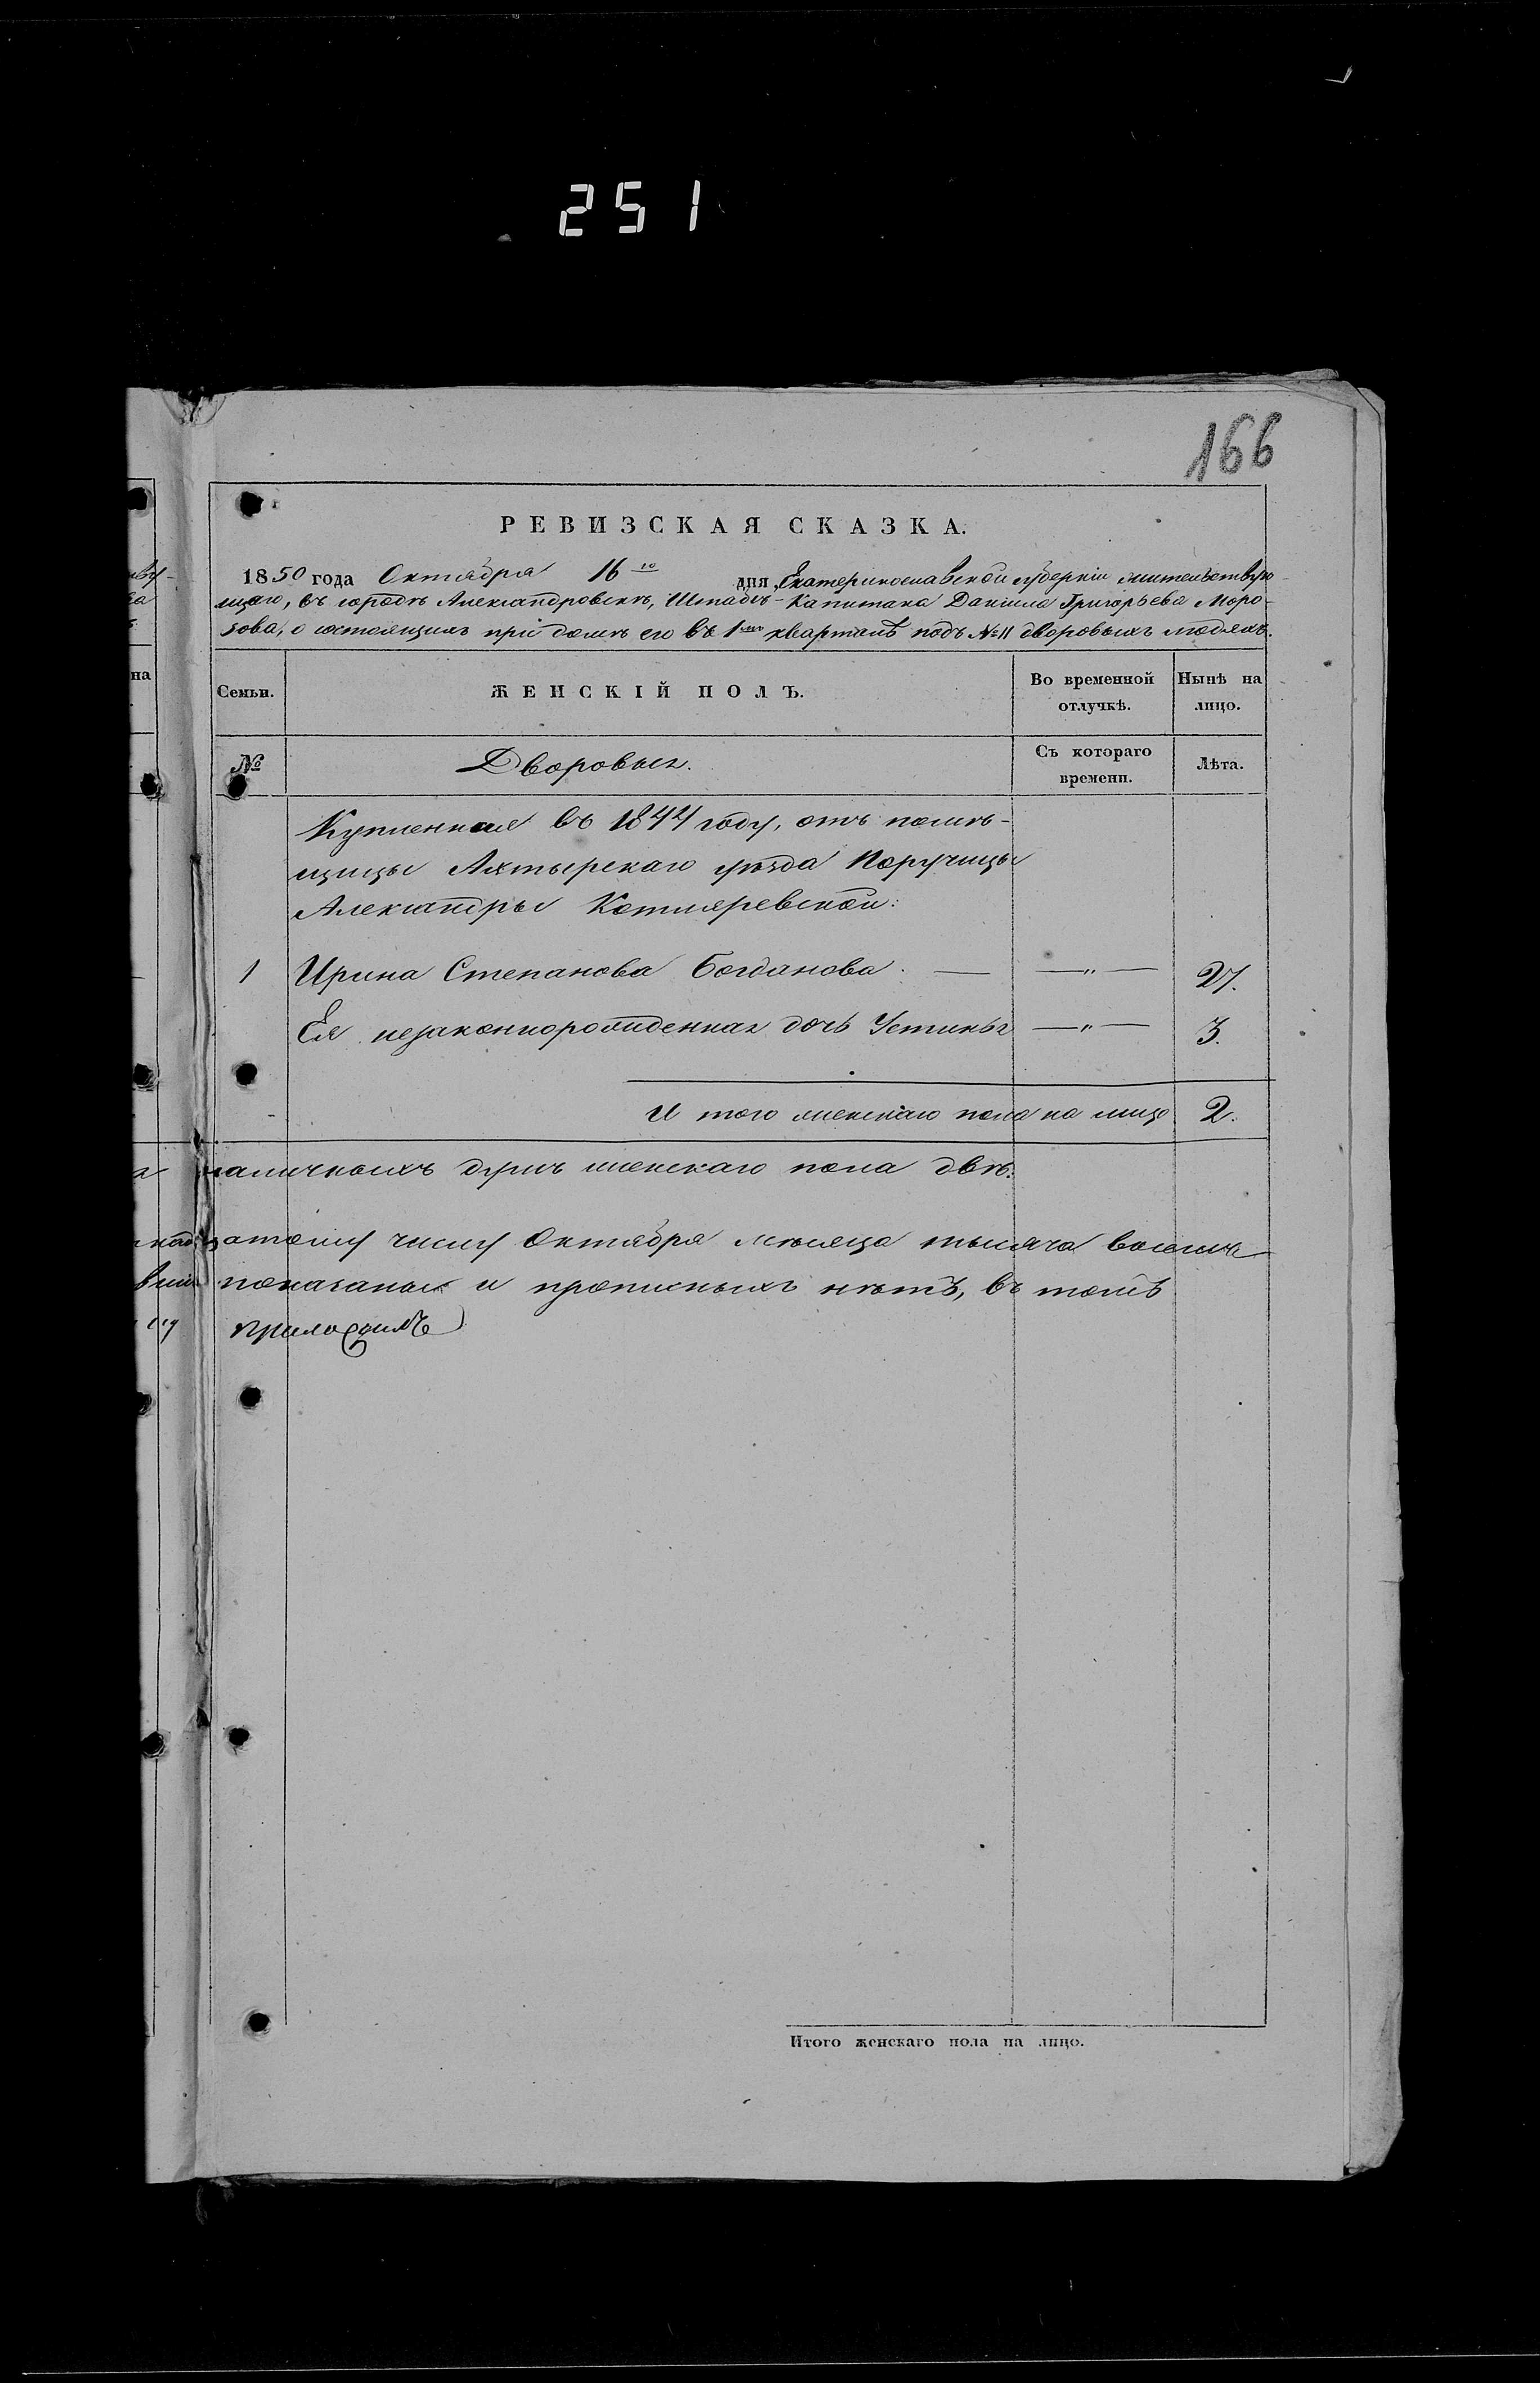 251
166
РЕВИЗСКАЯ СКАЗКА.
1850 года Октября 16го дня, Екатеринославской губерніи жительствую-
щаго, въ городѣ Александровскѣ, Штабсъ-Капитана Данила Григорьева Моро-
зова, о состоящихъ при домѣ его въ 1мъ кварталѣ подъ №11 дворовыхъ людяхъ.
Семьи. ЖЕНСКІЙ ПОЛЪ. Во временной отлучкѣ. Нынѣ на лицо.
№ Дворовыя. Съ котораго времени. Лѣта.
Купленная въ 1844 году, отъ помѣ-
щицы Ахтырскаго уѣзда Поручицы
Александры Котляревской:
1 Ирина Степанова Богданова. — —„— 27.
Ея незаконнорожденная дочь Устинья —„— 3.
И того женскаго пола на лицо 2.
наличныхъ душъ женскаго пола двѣ.
надцатому числу Октября мѣсяца тысяча восемь
показаныя и прописныхъ нѣтъ, въ томъ
приложилъ
Итого женскаго пола на лицо.